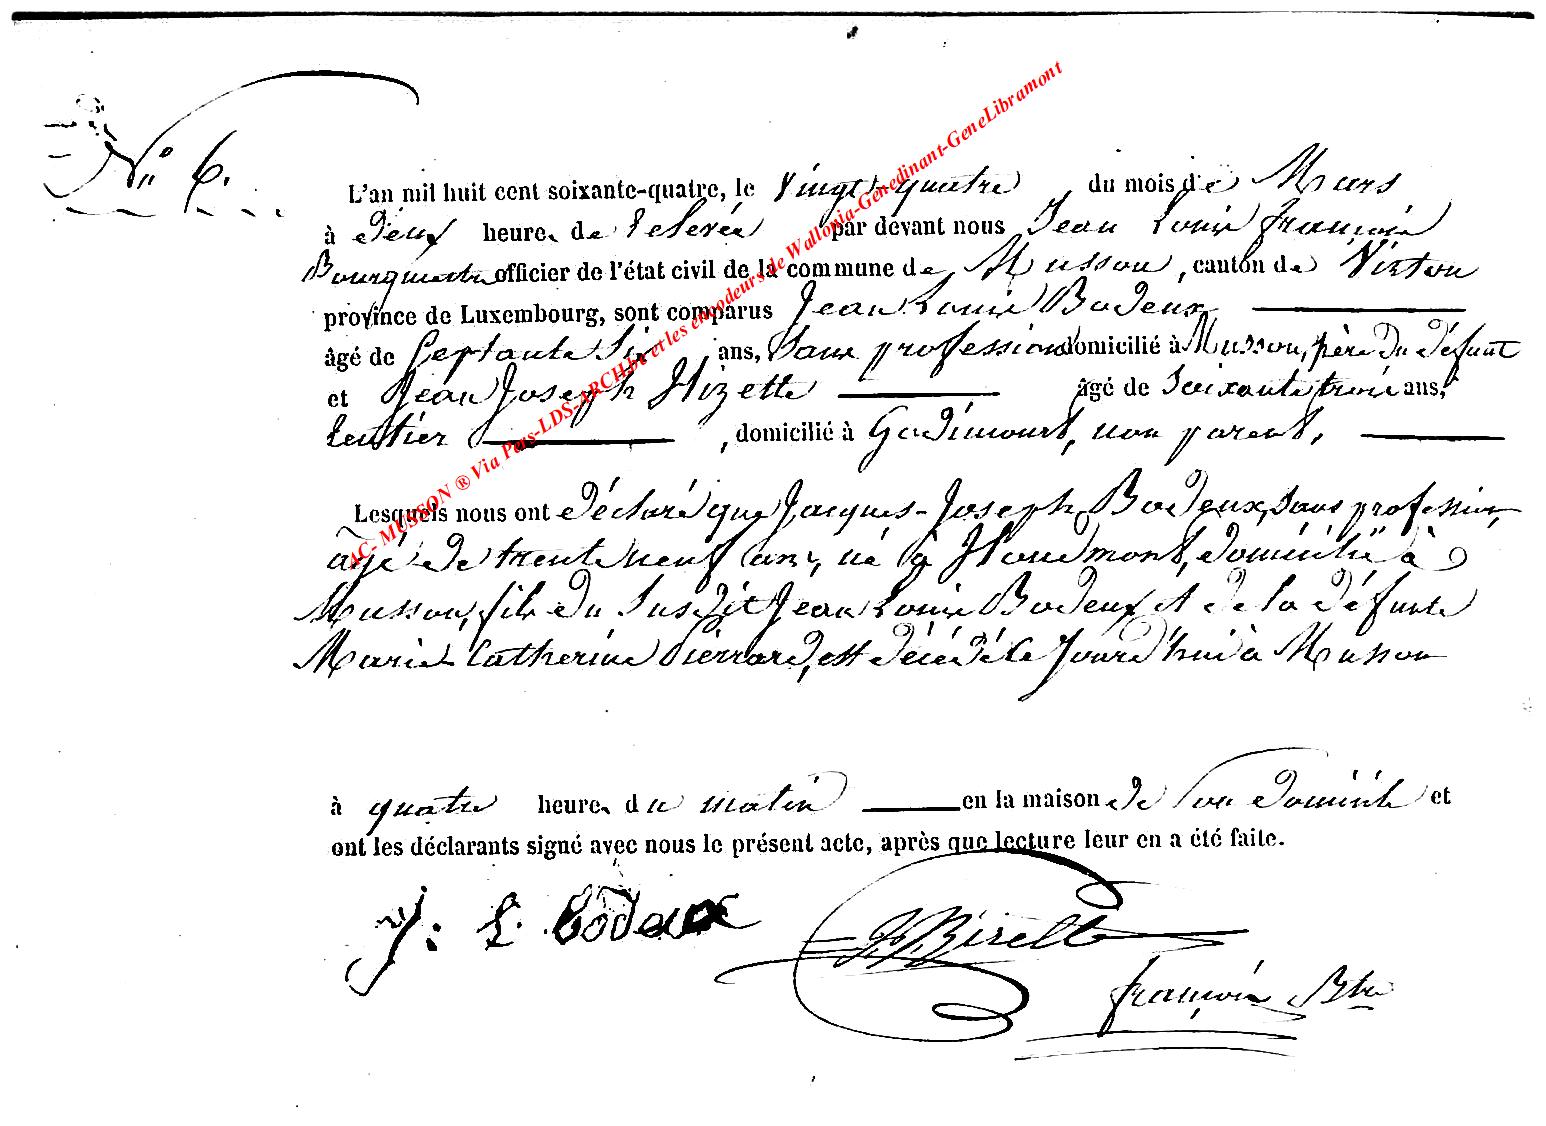 N° 6.
L'an mil huit cent soixante-quatre, le vingt-quatre du mois de Mars
à deux heures de relevée par devant nous Jean Louis François
Bourgmestre officier de l'état civil de la commune de Musson, canton de Virton
province de Luxembourg, sont comparus Jean Louis Bodeux
âgé de septante six ans, sans profession domicilié à Musson, père du défunt
et Jean Joseph Hizette âgé de soixante trois ans,
rentier, domicilié à Godincourt, non parent,
Lesquels nous ont déclaré que Jacques-Joseph Bodeux, sans profession,
âgé de trente neuf ans, né à Houdemont, domicilié à
Musson, fils du susdit Jean Louis Bodeux et de la défunte
Marie Catherine Pierrard, est décédé ce jourd'hui à Musson
à quatre heures du matin en la maison de son domicile et
ont les déclarants signé avec nous le présent acte, après que lecture leur en a été faite.
J. L. Bodeux
François Btre
AC- MUSSON ® Via Pas-LDS-ARCH.be et les encodeurs de Wallonia-Genedinant-GeneLibramont